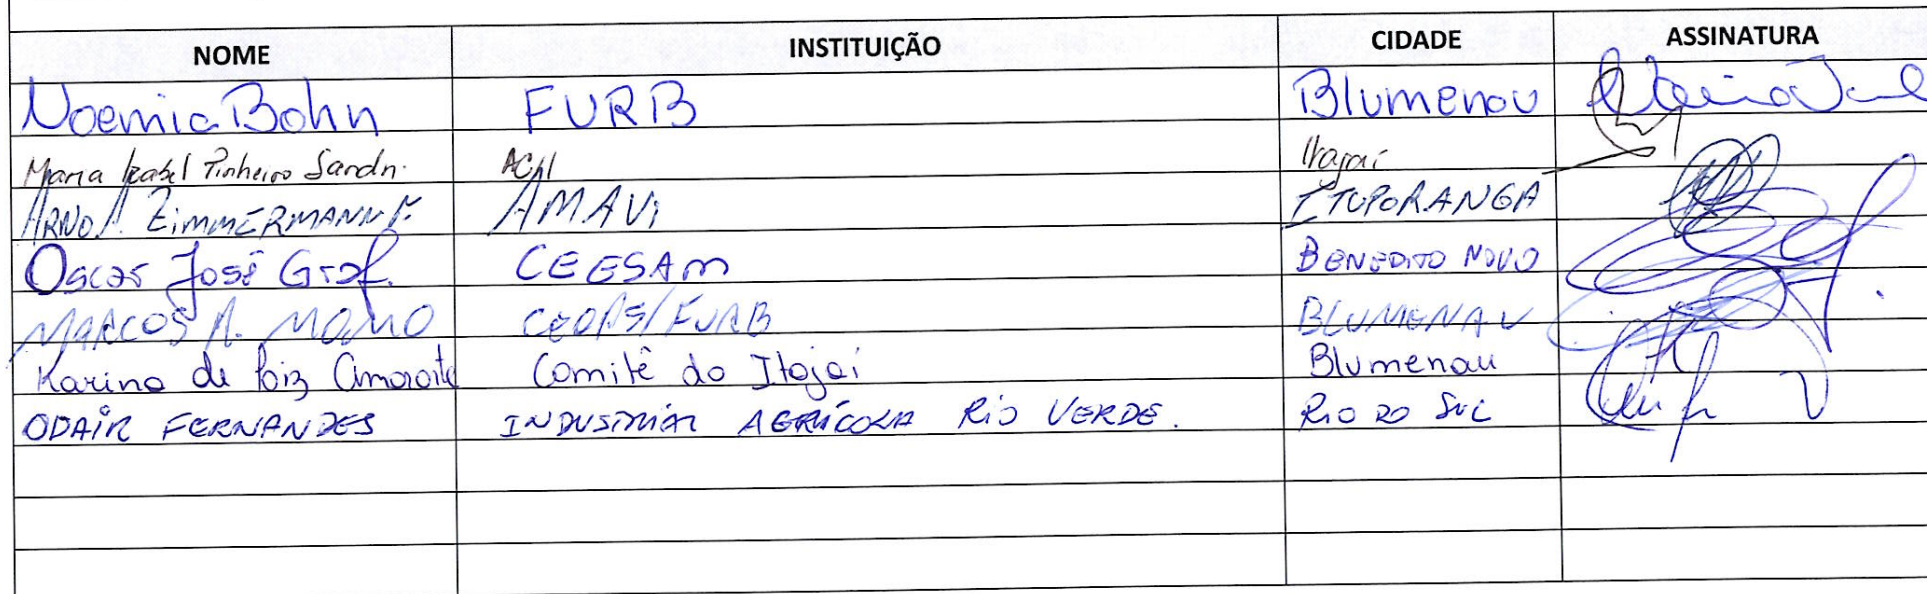 NOME INSTITUIÇÃO CIDADE ASSINATURA
Noemia Bohn FURB Blumenau
Maria Izabel Pinheiro Sandri ACII Itajaí
ARNO A. ZIMMERMANN F. AMAVI ITUPORANGA
Oscar José Graf. CEESAM BENEDITO NOVO
MARCOS A. MOMO CEOPS/FURB BLUMENAU
Karina de Comitê do Itajaí Blumenau
ODAIR FERNANDES INDUSTRIAL AGRÍCOLA RIO VERDE. RIO DO SUL